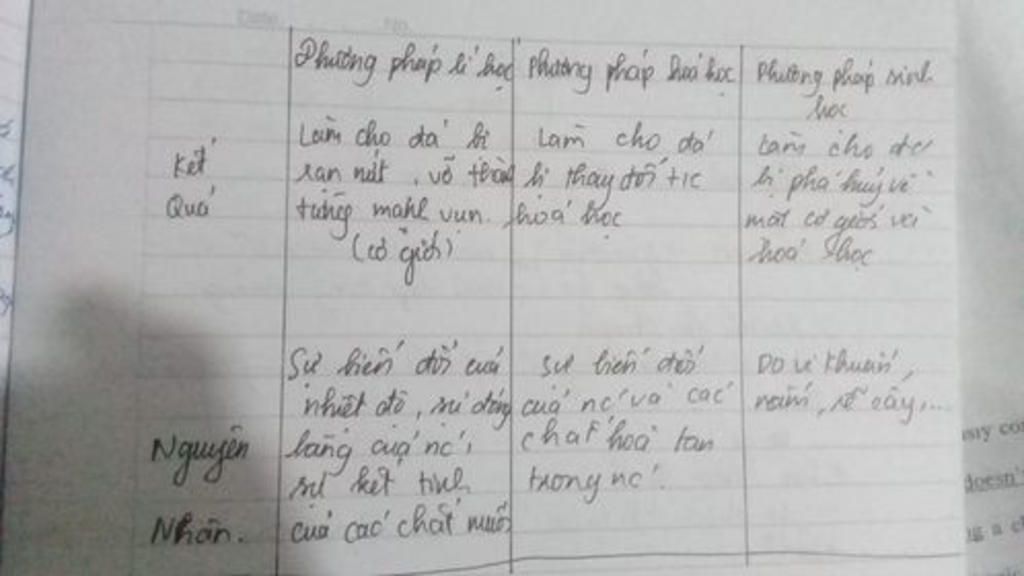 Date No.
Phương pháp lí học
Phương pháp hoá học
Phương pháp sinh
học
Kết
Quả
Làm cho đá bị
rạn nứt, vỡ thành
từng mảnh vụn.
(cơ giới)
Làm cho đá
bị thay đổi t/c
hoá học
Làm cho đá
bị phá huỷ về
mặt cơ giới và
hoá học
Nguyên
Nhân.
Sự biến đổi của
nhiệt độ, sự đóng
băng của nc,
sự kết tinh
của các chất muối
sự biến đổi
của nc và các
chất hoà tan
trong nc.
Do vi khuẩn,
nấm, rễ cây,...
doesn't